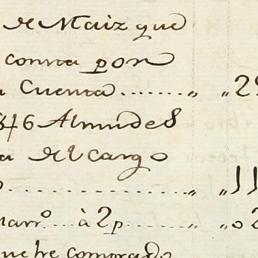 de Maiz que
contra por
Cuenta ....... „ „ 29
846 Almudes
a el cargo
............ „ „ 11
marº.... à 2p ..... „ „ 02
que he comprado